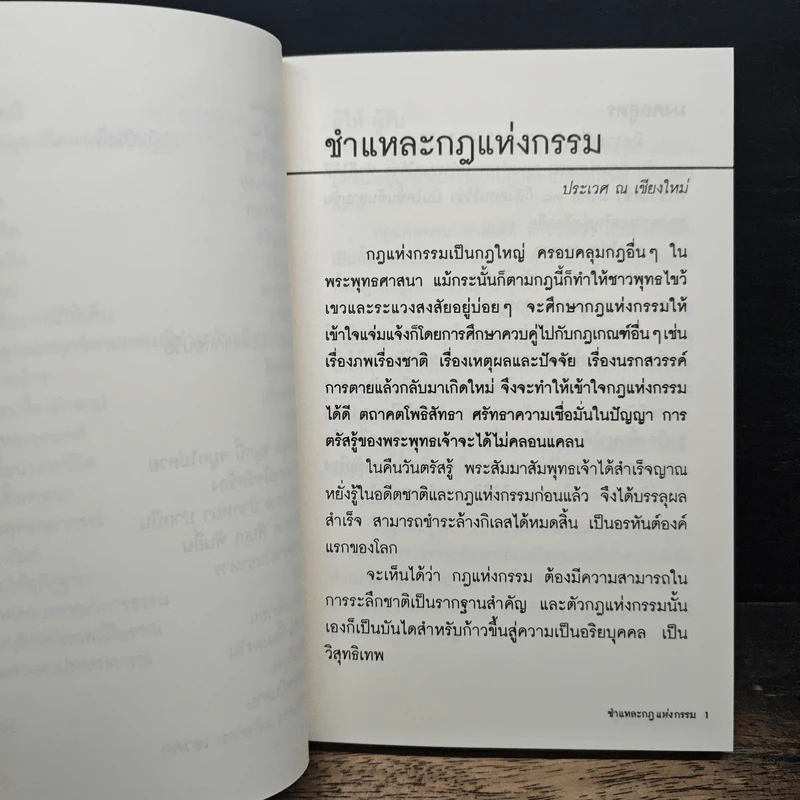 ชำแหละกฎแห่งกรรม
ประเวศ ณ เชียงใหม่
กฎแห่งกรรมเป็นกฎใหญ่ ครอบคลุมกฎอื่นๆ ใน
พระพุทธศาสนา แม้กระนั้นก็ตามกฎนี้ก็ทำให้ชาวพุทธไขว้
เขวและระแวงสงสัยอยู่บ่อยๆ จะศึกษากฎแห่งกรรมให้
เข้าใจแจ่มแจ้งก็โดยการศึกษาควบคู่ไปกับกฎเกณฑ์อื่นๆเช่น
เรื่องภพเรื่องชาติ เรื่องเหตุผลและปัจจัย เรื่องนรกสวรรค์
การตายแล้วกลับมาเกิดใหม่ จึงจะทำให้เข้าใจกฎแห่งกรรม
ได้ดี ตถาคตโพธิสัทธา ศรัทธาความเชื่อมั่นในปัญญา การ
ตรัสรู้ของพระพุทธเจ้าจะได้ไม่คลอนแคลน
ในคืนวันตรัสรู้ พระสัมมาสัมพุทธเจ้าได้สำเร็จญาณ
หยั่งรู้ในอดีตชาติและกฎแห่งกรรมก่อนแล้ว จึงได้บรรลุผล
สำเร็จ สามารถชำระล้างกิเลสได้หมดสิ้น เป็นอรหันต์องค์
แรกของโลก
จะเห็นได้ว่า กฎแห่งกรรม ต้องมีความสามารถใน
การระลึกชาติเป็นรากฐานสำคัญ และตัวกฎแห่งกรรมนั้น
เองก็เป็นบันไดสำหรับก้าวขึ้นสู่ความเป็นอริยบุคคล เป็น
วิสุทธิเทพ
ชำแหละกฎแห่งกรรม 1